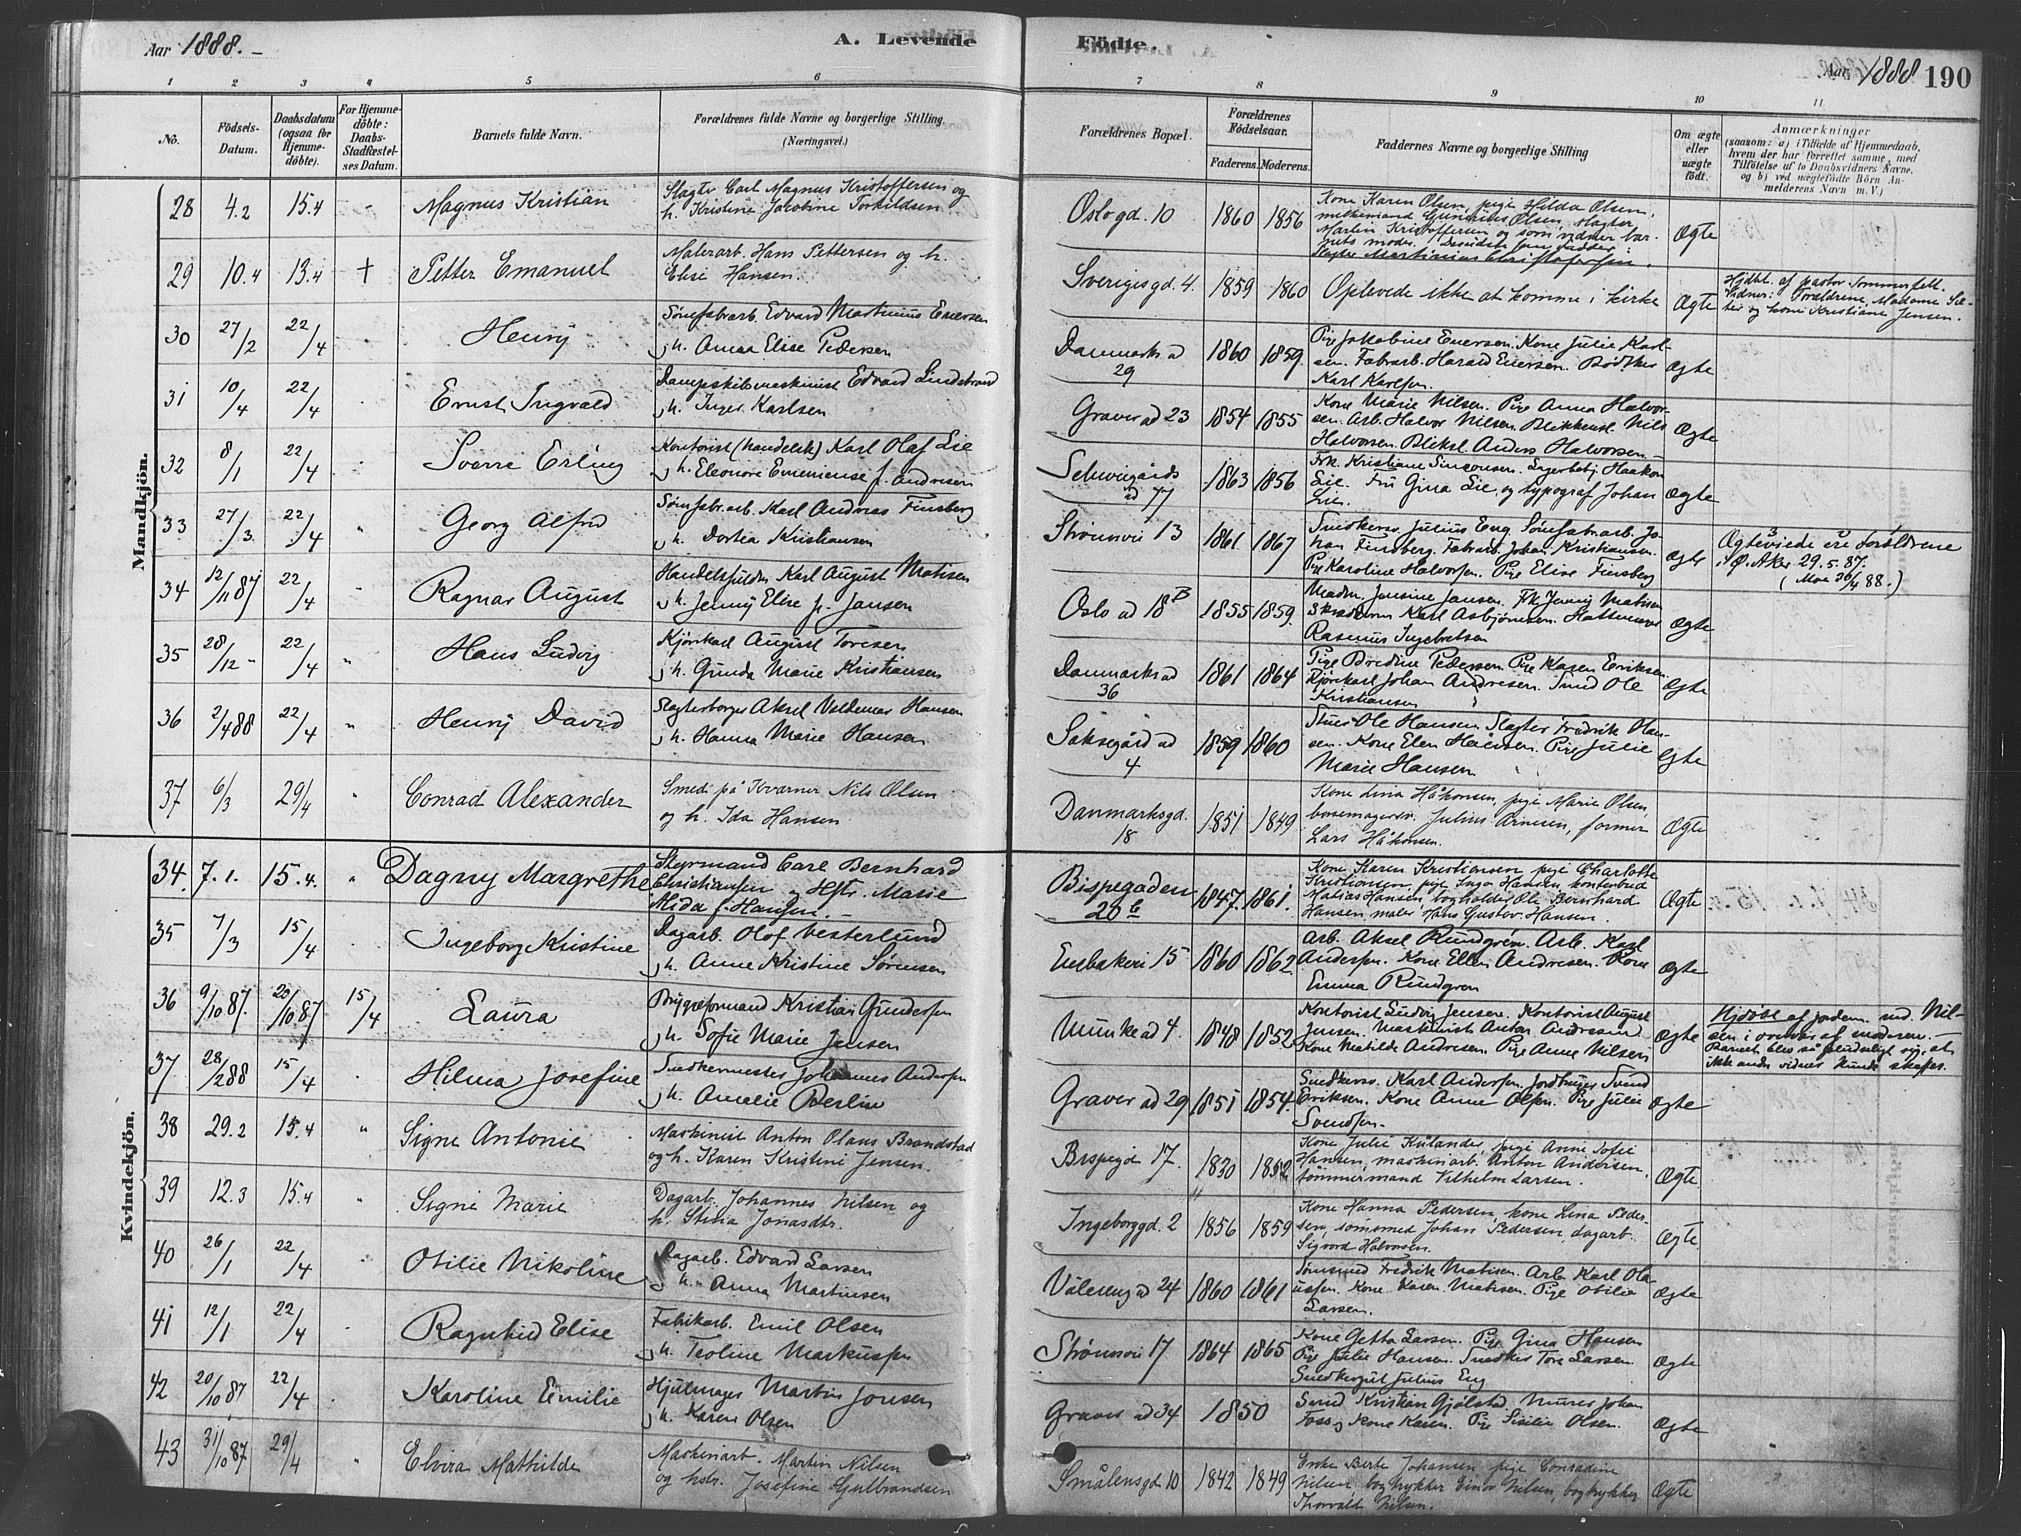 Aar 1888. A. Levende Födte. Aar 1888 190
1 2 3 4 5 6 7 8 9 10 11
No. Födsels-Datum. Daabsdatum (ogsaa for Hjemmedöbte). For Hjemmedöbte: Daabs-Stadfæstelses Datum. Barnets fulde Navn. Forældrenes fulde Navne og borgerlige Stilling (Næringsvei.) Forældrenes Bopæl. Forældrenes Födselsaar. Faderens. Moderens. Faddernes Navne og borgerlige Stilling Om ægte eller uægte födt. Anmærkninger (saasom: a) i Tilfælde af Hjemmedaab, hvem der har forrettet samme, med Tilföielse af to Daabsvidners Navne, og b) ved uægtefödte Börn Anmelderens Navn m. V.)
Mandkjön.
28 4.2 15.4 Magnus Kristian Slagter Carl Magnus Kristoffersen og h. Kristine Jacobine Torkildsen Oslogd. 10 1860 1856 Kone Karen Olsen, pige Hilda Olsen, Olsen, slagter Martin Kristoffersen og som vidner barnets moder. Ægte
29 10.4 13.4 + Petter Emanuel Malerarb. Hans Pettersen og h. Elise Hansen. Sverigesgd. 4. 1859 1860 Oplevede ikke at komme i kirke Ægte Hjdbt. af pastor Sommerfelt. Vidner: Forældrene, Madame og kone Kristiane Jensen.
30 27/2 22/4 Henry Sömfabarb. Edvard Martinius Enersen h. Anna Elise Pedersen Danmarks gd 29 1860 1859. Pige Jakobine Enersen. Kone Julie Karlsen. Fabarb. Harald Enersen. Bödker Karl Karlsen. Ægte
31 10/4 22/4 Ernst Ingvald Dampskibsmaskinist Edvard Lindstrand h. Inger Karlsen Graver gd 23 1854 1855 Kone Marie Nilsen. Pige Anna Halvorsen. Arb. Halvor Nilsen. Nils Halvorsen. Anders Halvorsen. Ægte
32 8/1 22/4 Sverre Erling Kontorist (handelsk) Karl Olaf Lie h. Eleonore f. Andresen Schweigårds gd 77 1863 1856 Frk. Kristiane Simonsen. Haakon Lie. Fru Gina Lie, og typograf Johan Lie. Ægte
33 27/3 22/4 Georg Alfred Sömfabr.arb. Karl Andreas Finsberg h. Dortea Kristiansen Strömsvei 13 1861 1867 Snedkersv. Julius Eng. Sömfabrarb. Johan Finsberg. Fabarb. Johan Kristiansen. Pige Karoline Halvorsen. Pige Elise Finsberg Ægte Ægteviede ere Forældrene i Ø. Aker 29.5.87. (Moe 30/4 88.)
34 12/11 87 22/4 Ragnar August Handelsfuldm Karl August Matisen h. Jenny Elise f. Jansen Oslo gd 18B 1855 1859. Madm. Jansine Jansen. Frk Jenny Matisen Skrædderm Karl Asbjörnsen. Hattemager Rasmus Ingebretsen Ægte
35 28/12 22/4 Hans Ludvig Kjörekarl August Toresen h. Gunda Marie Kristiansen Danmarks gd 36 1861 1864 Pige Bredine Pedersen. Pige Karen Eriksen Kjörekarl Johan Andresen. Smed Ole Kristiansen Ægte
36 2/4 88 22/4 Henry David Slagterborger Aksel Valdemar Hansen h. Hanna Marie Hansen Saksegård gd 4 1859 1860 Stuer Ole Hansen. Slagter Fredrik Hansen. Kone Elen Hansen. Pige Julie Marie Hansen. Ægte
37 6/3 29/4 Conrad Alexander Smed på Kværner Nils Olsen og h. Ida Hansen. Danmarksgd. 18 1851 1849 Kone Lina Håkonsen, pige Marie Olsen, Julius Arnesen, former Lars Håkonsen. Ægte
Kvindekjön.
34 7.1. 15.4. Dagny Margrethe Styrmand Carl Bernhard Christiansen og Hstr. Marie Alida f. Hansen. Bispegaden 20b 1847. 1861. Kone Karen Kristiansen pige Charlotte Kristiansen, pige Inga Hansen, kontorbud Matias Hansen, bogholder Ole Bernhard Hansen, maler Hans Gustav Hansen. Ægte
35 7/3 15/4 Ingeborg Kristine Dagarb. Olof Vesterlund h. Anne Kristine Sörensen Enebakvei 15 1860 1862. Arb. Aksel Rundgrén. Arb. Karl Andersen. Kone Ellen Andresen. Kone Emma Rundgren Ægte
36 9/10 87. 20/10 87 15/4 Laura Bryggeformand Kristian Gundersen h. Sofie Marie Jensen Munke gd 4. 1848 1852 Kontorist Ludvig Jensen. Kontorist August Jensen. Maskinist Anton Andresen Kone Matilde Andresen. Pige Anne Nilsen Ægte Hjdöbt af jordem. md. Nilsen i overvær af moderen. Barnet blev så pludseligt sygt, at ikke andre vidner kunde skaffes.
37 28/2 88 15/4 Hilma Josefine Snedkermester Johannes Andersen h. Amelie Berlin Graver gd 29 1851 1854. Snedkersv. Karl Andersen. Jordbruger Svend Eriksen. Kone Anne Olsen. Pige Julie Svendsen. Ægte
38 29.2 15.4 Signe Antonie Maskinist Anton Olaus Brandstad og h. Karen Kristine Jensen. Bispegd 17. 1830 1852 Kone Julie Kulander, pige Anne Sofie Hansen, maskinarb. Anton Andersen, tömmermand Vilhelm Larsen. Ægte
39 12.3 15.4 Signe Marie Dagarb. Johannes Nilsen og h. Stina Jonasdtr. Ingeborggd. 2 1856 1859 Kone Hanna Pedersen, kone Lina Pedersen, sömsmed Johan Pedersen, dagarb. Sigvard Halvorsen. Ægte
40 26/1 22/4 Otilie Nikoline Dagarb. Edvard Larsen h. Anna Martinsen Vålereng gd 24 1860 1861 Sömsmed Fredrik Matisen. Arb. Karl Olaussen. Kone Karen Matisen. Pige Otilie Larsen. Ægte
41 12/1 22/4 Ragnhild Elise Fabrikarb. Emil Olsen h. Teoline Markussen Strömsvei 17 1864 1865 Kone Getta Larsen. Pige Gina Hansen Pige Julie Hansen. Snedker Tore Larsen. Snedkersvd Julius Eng Ægte
42 20/10 87 22/4 Karoline Emilie Hjulmager Martin Jonsen h. Karen Olsen Graver gd 34 1850 Smed Kristian Gjölstad. Murer Johan Foss og Kone Karen. Pige Sisilie Olsen. Ægte
43 31/10 87 29/4 Elvira Mathilde Maskinarb. Martin Nilsen og hstr. Josefine Gulbrandsen Smålensgd 10 1842 1849 Enke Berte Johansen, pige Conradine Nilsen, bogtrykker Einar Nilsen, bogtrykker Thorvald Nilsen. Ægte